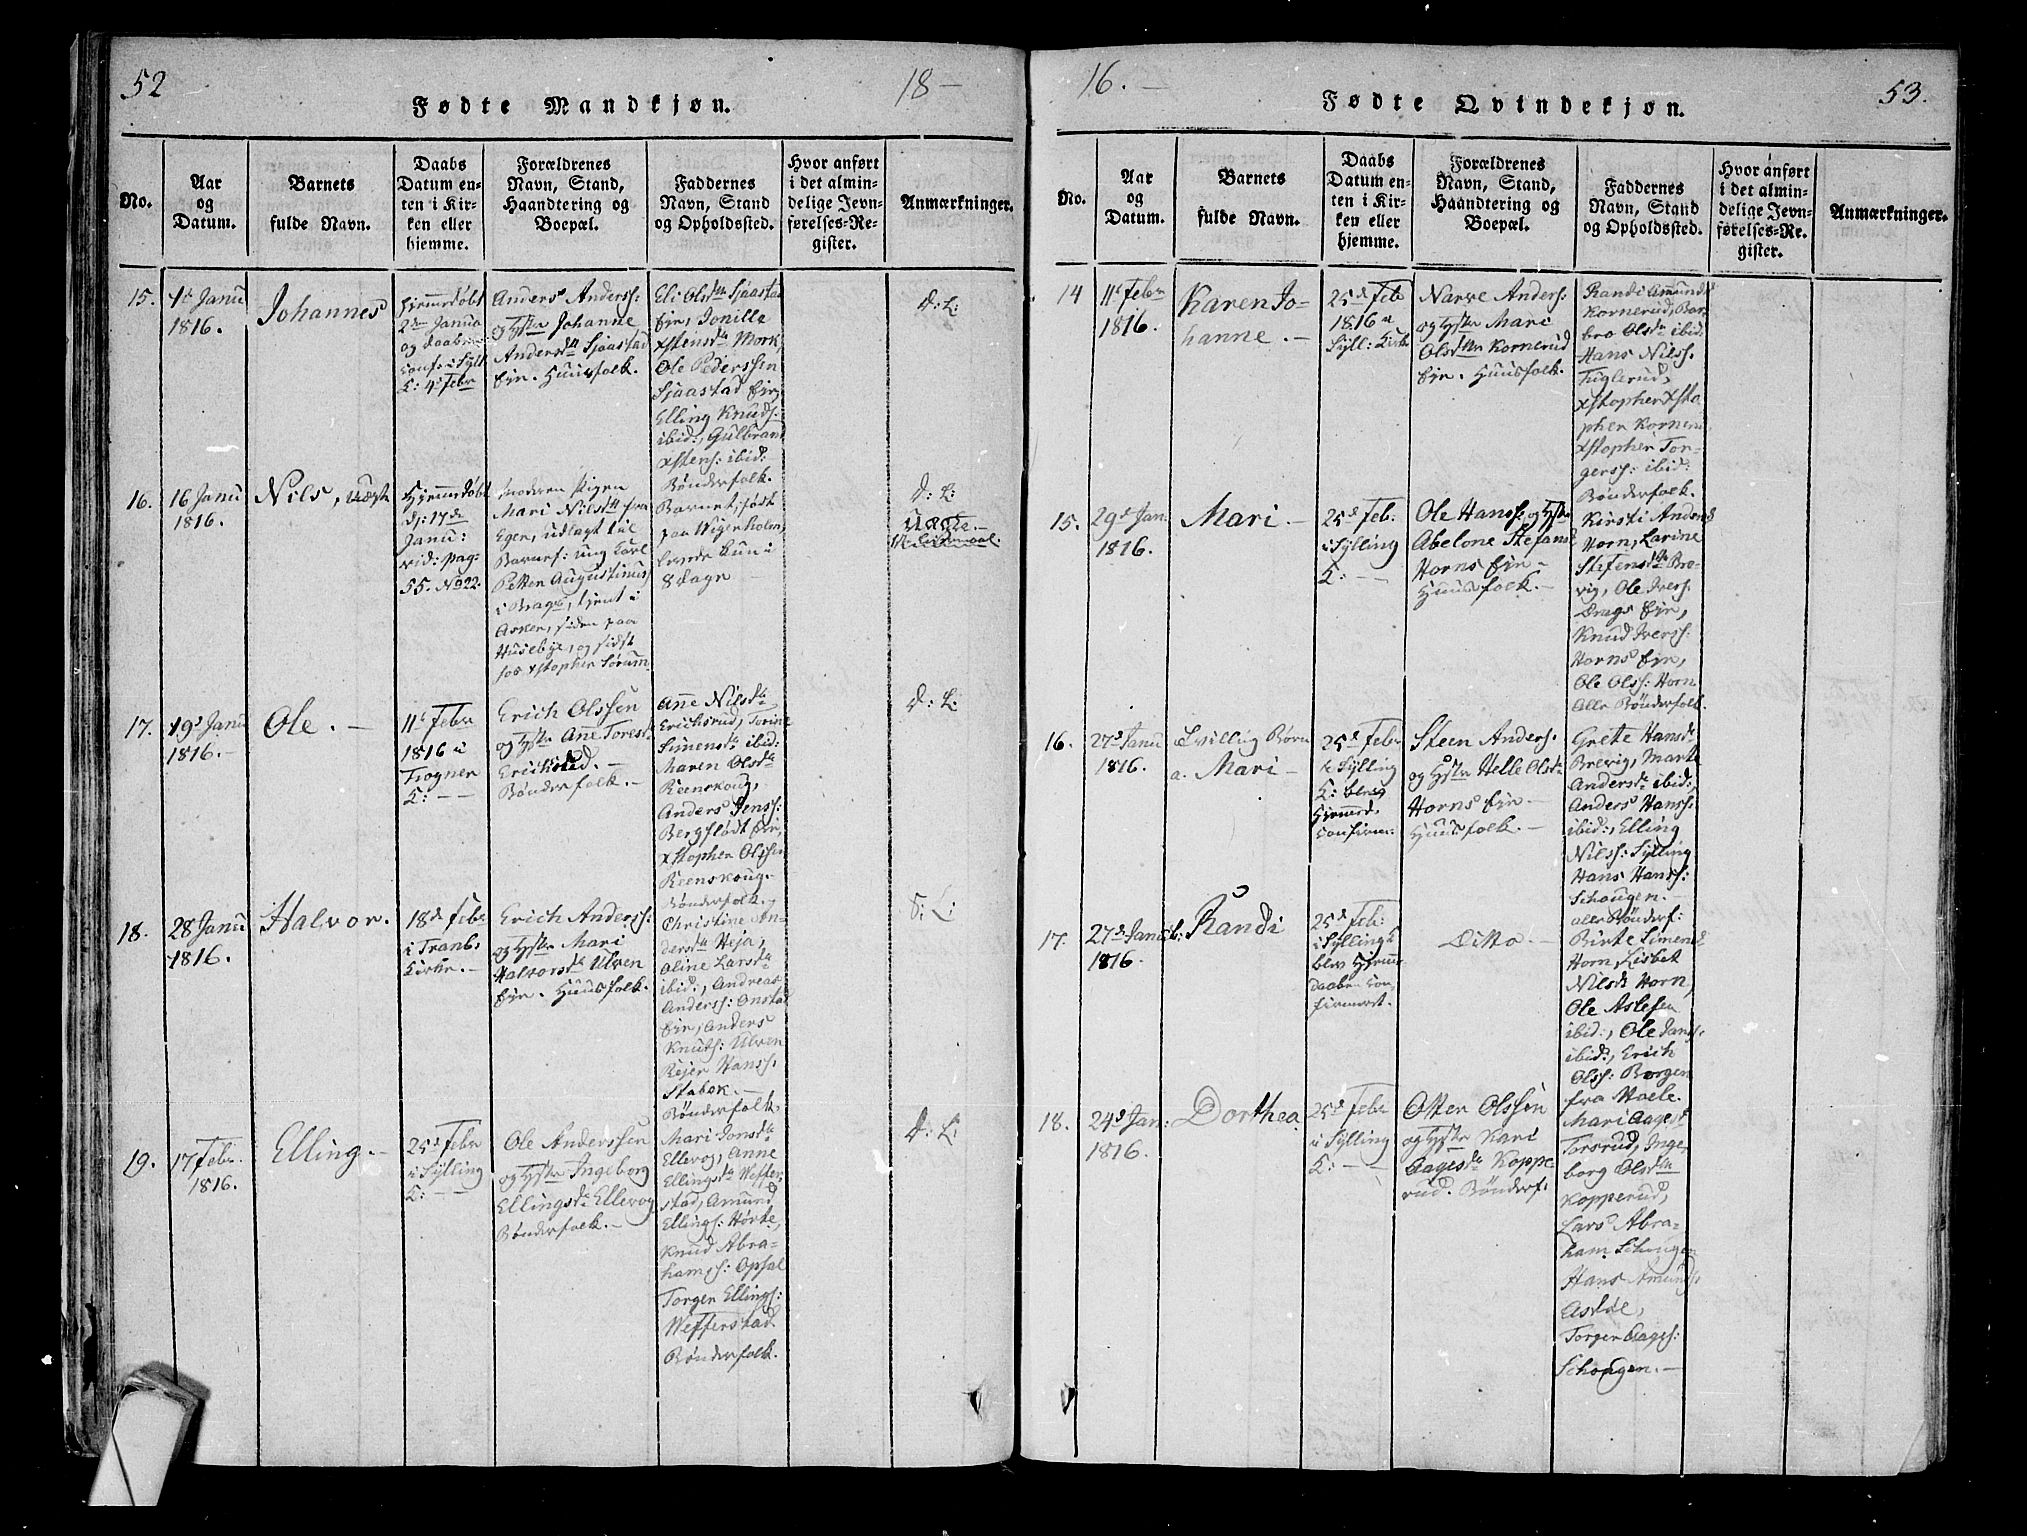 52
18 —
Fødte Mandkjøn.
No.
Aar
og
Datum.
Barnets
fulde Navn.
Daabs
Datum en-
ten i Kir-
ken eller
hjemme.
Forældrenes
Navn, Stand,
Haandtering og
Boepæl.
Faddernes
Navn, Stand
og Opholdssted.
Hvor anført
i det almin-
delige Jevn-
førelses-Re-
gister.
Anmærkninger.
15.
1t Janu
1816.
Johannes
Hjemmedøbt
2den Janua
og Daaben
conf: i Syll
K: 4t Febr
Anders Anderss:
og Hstr Johanne
Andersdtr Sjaastad
Eje. Huusfolk.
Eli Olsdtr Sjaastad
Eje, Jonille
Xstensdtr Mork,
Ole Pederssen
Sjaastad Eje,
Elling Knuds:
ibid:, Gulbrand
Xstens: ibid:
Bønderfolk.
d: L:
16.
16 Janu
1816.
Nils, uægte
Hjemmedøbt
d: 17de
Janu:
vid: pag:
55. No 22.
Moderen Pigen
Mari Nilsdtr fra
Eger, udlagt til
Barnef: ung Karl
Petter Augustinuss:
i Brage, tjent i
Asker, siden paa
Husebye, og sidst
hos Xstopher Sørum
Barnet, født
paa Wigerholm,
levede kun i
8 dage —
d: L:
Uægte. —
1te Leiermaal.
17.
19d Janu
1816. —
Ole. —
11t Febr
1816 i
Trogner
K: — —
Erich Olssen
og Hstr Ane Toresd
Erichsrud. —
Bønderfolk. —
Anne Nilsdtr
Erichsrud, Torine
Simensdtr ibid:
Maren Olsdtr
Reenskoug,
Anders Jenss:
Bergflødt Eje,
Xstopher Olssen
Reenskoug. —
Bønderfolk.
d: L:
18.
28 Janu
1816.
Halvor.
18d Febr
i Tranb:
Kirke. —
Erich Anderss:
og Hstr Mari
Halvorsdtr Ulven
Eje. Huusfolk.
Christine An-
dersdtr Heja,
Oline Larsdtr
ibid:, Andreas
Anderss: Onstad
Eje, Anders
Knuts: Ulven
Rejer Hanss:
Stabek. —
Bønderfolk.
d: L:
19.
17 Febr.
1816.
Elling. —
25d Febr
i Sylling
K: — —
Ole Anderssen
og Hstr Ingeborg
Ellingsdtr Ellevog
Bønderfolk. —
Mari Jonsdtr
Ellevog, Anne
Ellingsdtr Weffer-
stad, Amund
Ellings: Hørte,
Knud Abra-
hamss: Opsal
Torger Ellings:
Wefferstad
Bønderfolk.
d: L:
16. —
53.
Fødte Qvindekjøn.
No.
Aar
og
Datum.
Barnets
fulde Navn.
Daabs
Datum en-
ten i Kir-
ken eller
hjemme.
Forældrenes
Navn, Stand,
Haandtering og
Boepæl.
Faddernes
Navn, Stand
og Opholdssted.
Hvor anført
i det almin-
delige Jevn-
førelses-Re-
gister.
Anmærkninger.
14
11t Febr
1816.
Karen Jo-
hanne. —
25d Feb
1816 i
Syll: Kirke
Narve Anders:
og Hstr Mari
Olsdtr Kornerud
Eje. Huusfolk.
Randi Amundsd
Kornerud, Bar-
bro Olsdtr ibid:
Hans Nilss:
Fuglerud,
Xstopher Xsto-
pher Korneru
Xstopher Tor-
gerss: ibid:
Bønderfolk.
15.
29d Jan.
1816.
Mari —
25d Feb:
i Sylling
K: — —
Ole Hanss: og Hstr
Abelone Stefansd
Horns Eje —
Huusfolk. —
Kirsti Andersd
Horn, Larine
Stefensdtr Bre-
vig, Ole Ivers:
Drags Eje,
Knud Iverss:
Horns Eje,
Ole Olss: Horn
Alle Bønderfolk.
16.
27d Janu
1816.
Tvilling Børn
a. Mari —
25d Febr
i Sylling
K: blev
Hjemmed.
confirm:
Steen Anders:
og Hstr Helle Olsdtr
Horns Eje —
Huusfolk. —
Grete Hansd
Brevig, Marte
Andersdtr ibid:,
Anders Hanss:
ibid:, Elling
Nilss: Sylling
Hans Hanss:
Schougen.
alle Bønderf:
17.
27d Janu
1816.
b: Randi
25d Feb:
i Sylling K
blev Hjemme
Daaben con-
firmeret.
Ditto. —
Birte Simensd
Horn, Lisbet
Nilsd: Horn,
Ole Aslesen
ibid:, Ole Jans:
ibid:, Erich
Olss: Borgen
fra Hoele.
18.
24d Jan:
1816.
Dorthea
25d Febr
i Sylling
K: — —
Otter Olssen
og Hstr Kari
Aagesdtr Koppe-
rud. Bønderf:
Mari Aagesd
Torsrud, Inge-
borg Olsdtr
Kopperud,
Lars Abra-
ham Schougen
Hans Amunds:
Asdøe,
Torger Aages:
Schougen. —